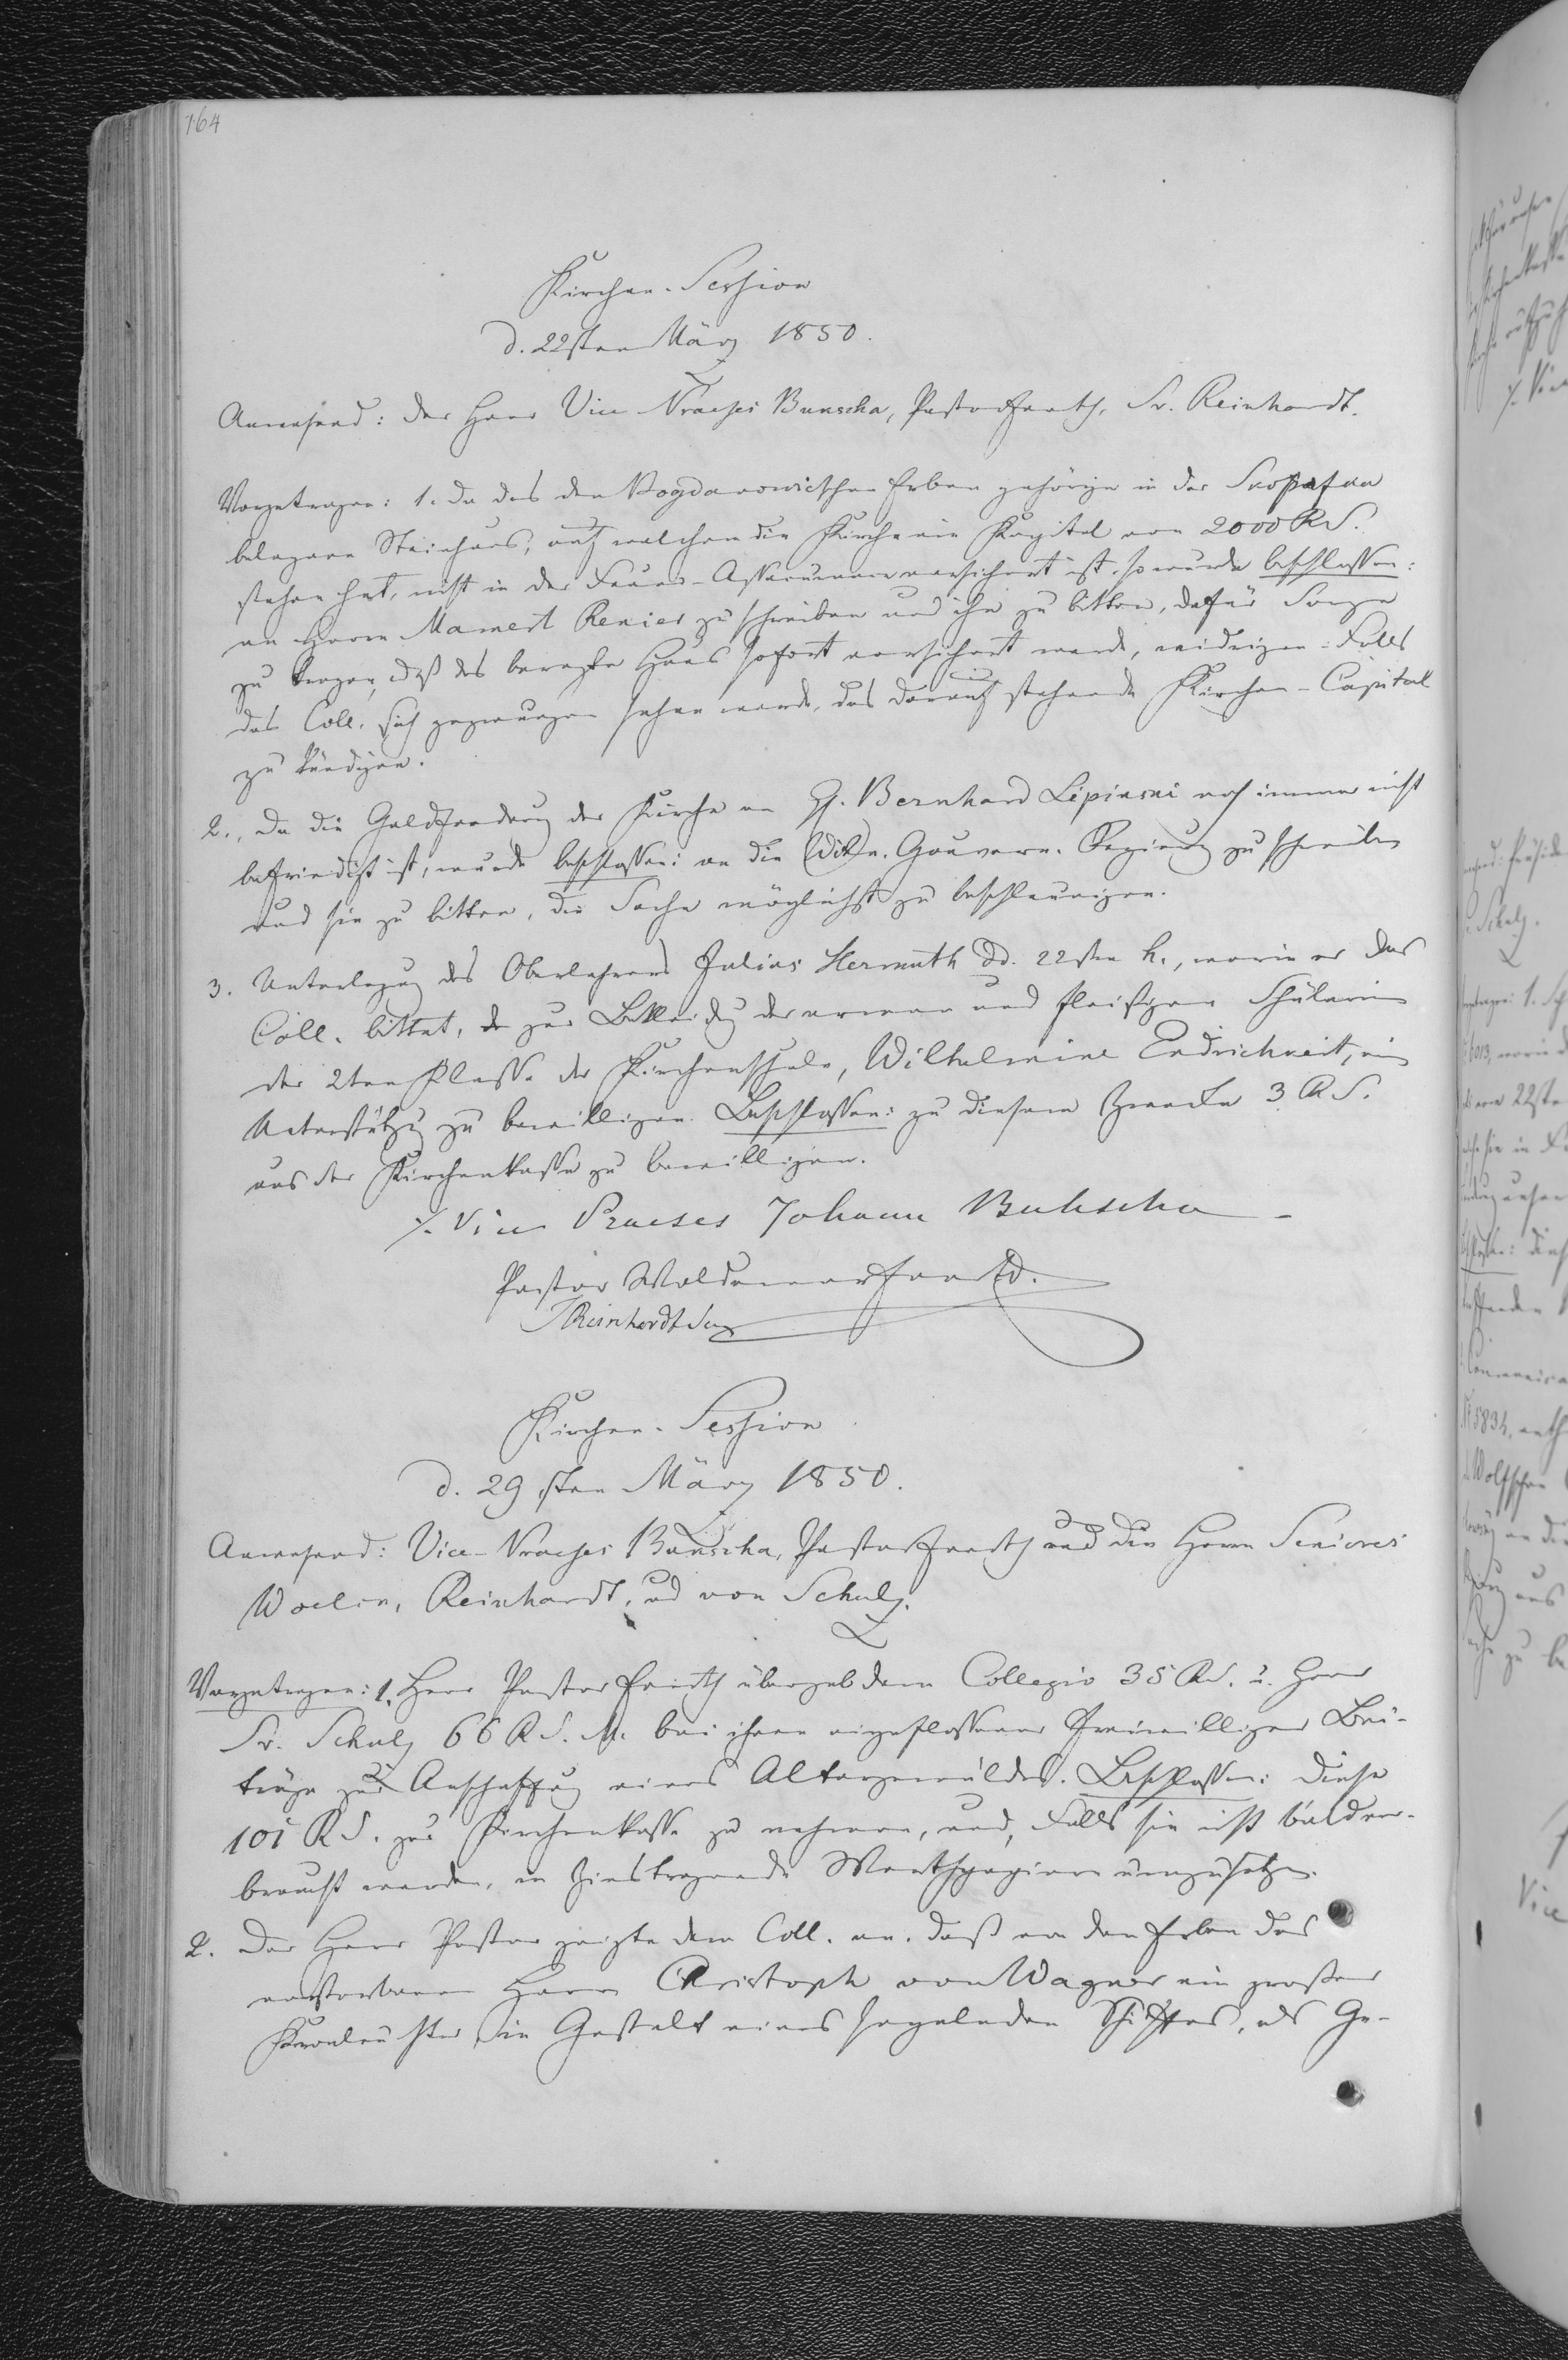 164
Kirchen-Session
d. 22sten März 1850.
Anwesend: der Herr Vice Praeses Bunscha, Pastor Everth, Sr. Reinhardt.
Vorgetragen: 1. Da das den Bogdanowitschen Erben gehörige in der
belegene Steinhaus, auf welchem die Kirche ein Kapital von 2000 RS.
stehen hat, nicht in der Feuer-Assecuranz versichert ist, so wurde beschlossen:
an Herrn Mamert Renier zu schreiben und ihn zu bitten, dafür Sorge
zu tragen, daß das besagte Haus sofort versichert werde, widrigen-Falls
das Coll. sich gezwungen sehen werde, das darauf stehende Kirchen-Capital
zu kündigen.
2., Da die Geldforderung der Kirche an H. Bernhard Lipinski noch immer nicht
befriedigt ist, wurde beschlossen: an die Wiln. Gouvern. Regierung zu schreiben
und sie zu bitten, die Sache möglichst zu beschleunigen.
3. Unterlegung des Oberlehrers Julius Hermuth dd. 22sten h., worin er das
Coll. bittet, zur Bekleidung der armen und fleißigen Schülerin
der 2ten Klasse der Kirchenschule, Wilhelmine Endrichneit, eine
Unterstützung zu bewilligen. Beschlossen: zu diesem Zwecke 3 RS.
aus der Kirchenkasse zu bewilligen.
Vice Praeses Johann Buhscha
Pastor Woldemar Everth.
Reinhardt Sen
Kirchen-Session
d. 29sten März 1850.
Anwesend: Vice-Praeses Bunscha, Pastor Everth und die Herrn Seniores
Woelin, Reinhardt, und von Schulz.
Vorgetragen: 1. Herr Pastor Everth übergab dem Collegio 35 RS. u. Herr
Sr. Schulz 66 RS. M. bei ihnen eingeflossener freiwilliger Bei-
träge zur Anschaffung eines Altargemäldes. Beschlossen: diese
101 RS. zur Kirchenkasse zu nehmen, und, Falls sie nicht bald ver-
braucht werden, in zinstragende Werthpapiere umzusetzen.
2. Der Herr Pastor zeigte dem Coll. an, daß von den Erben des
verstorbenen Herrn Christoph von Wagner ein großer
Kronleuchter, in Gestalt eines segelnden Schiffes, als Ge-